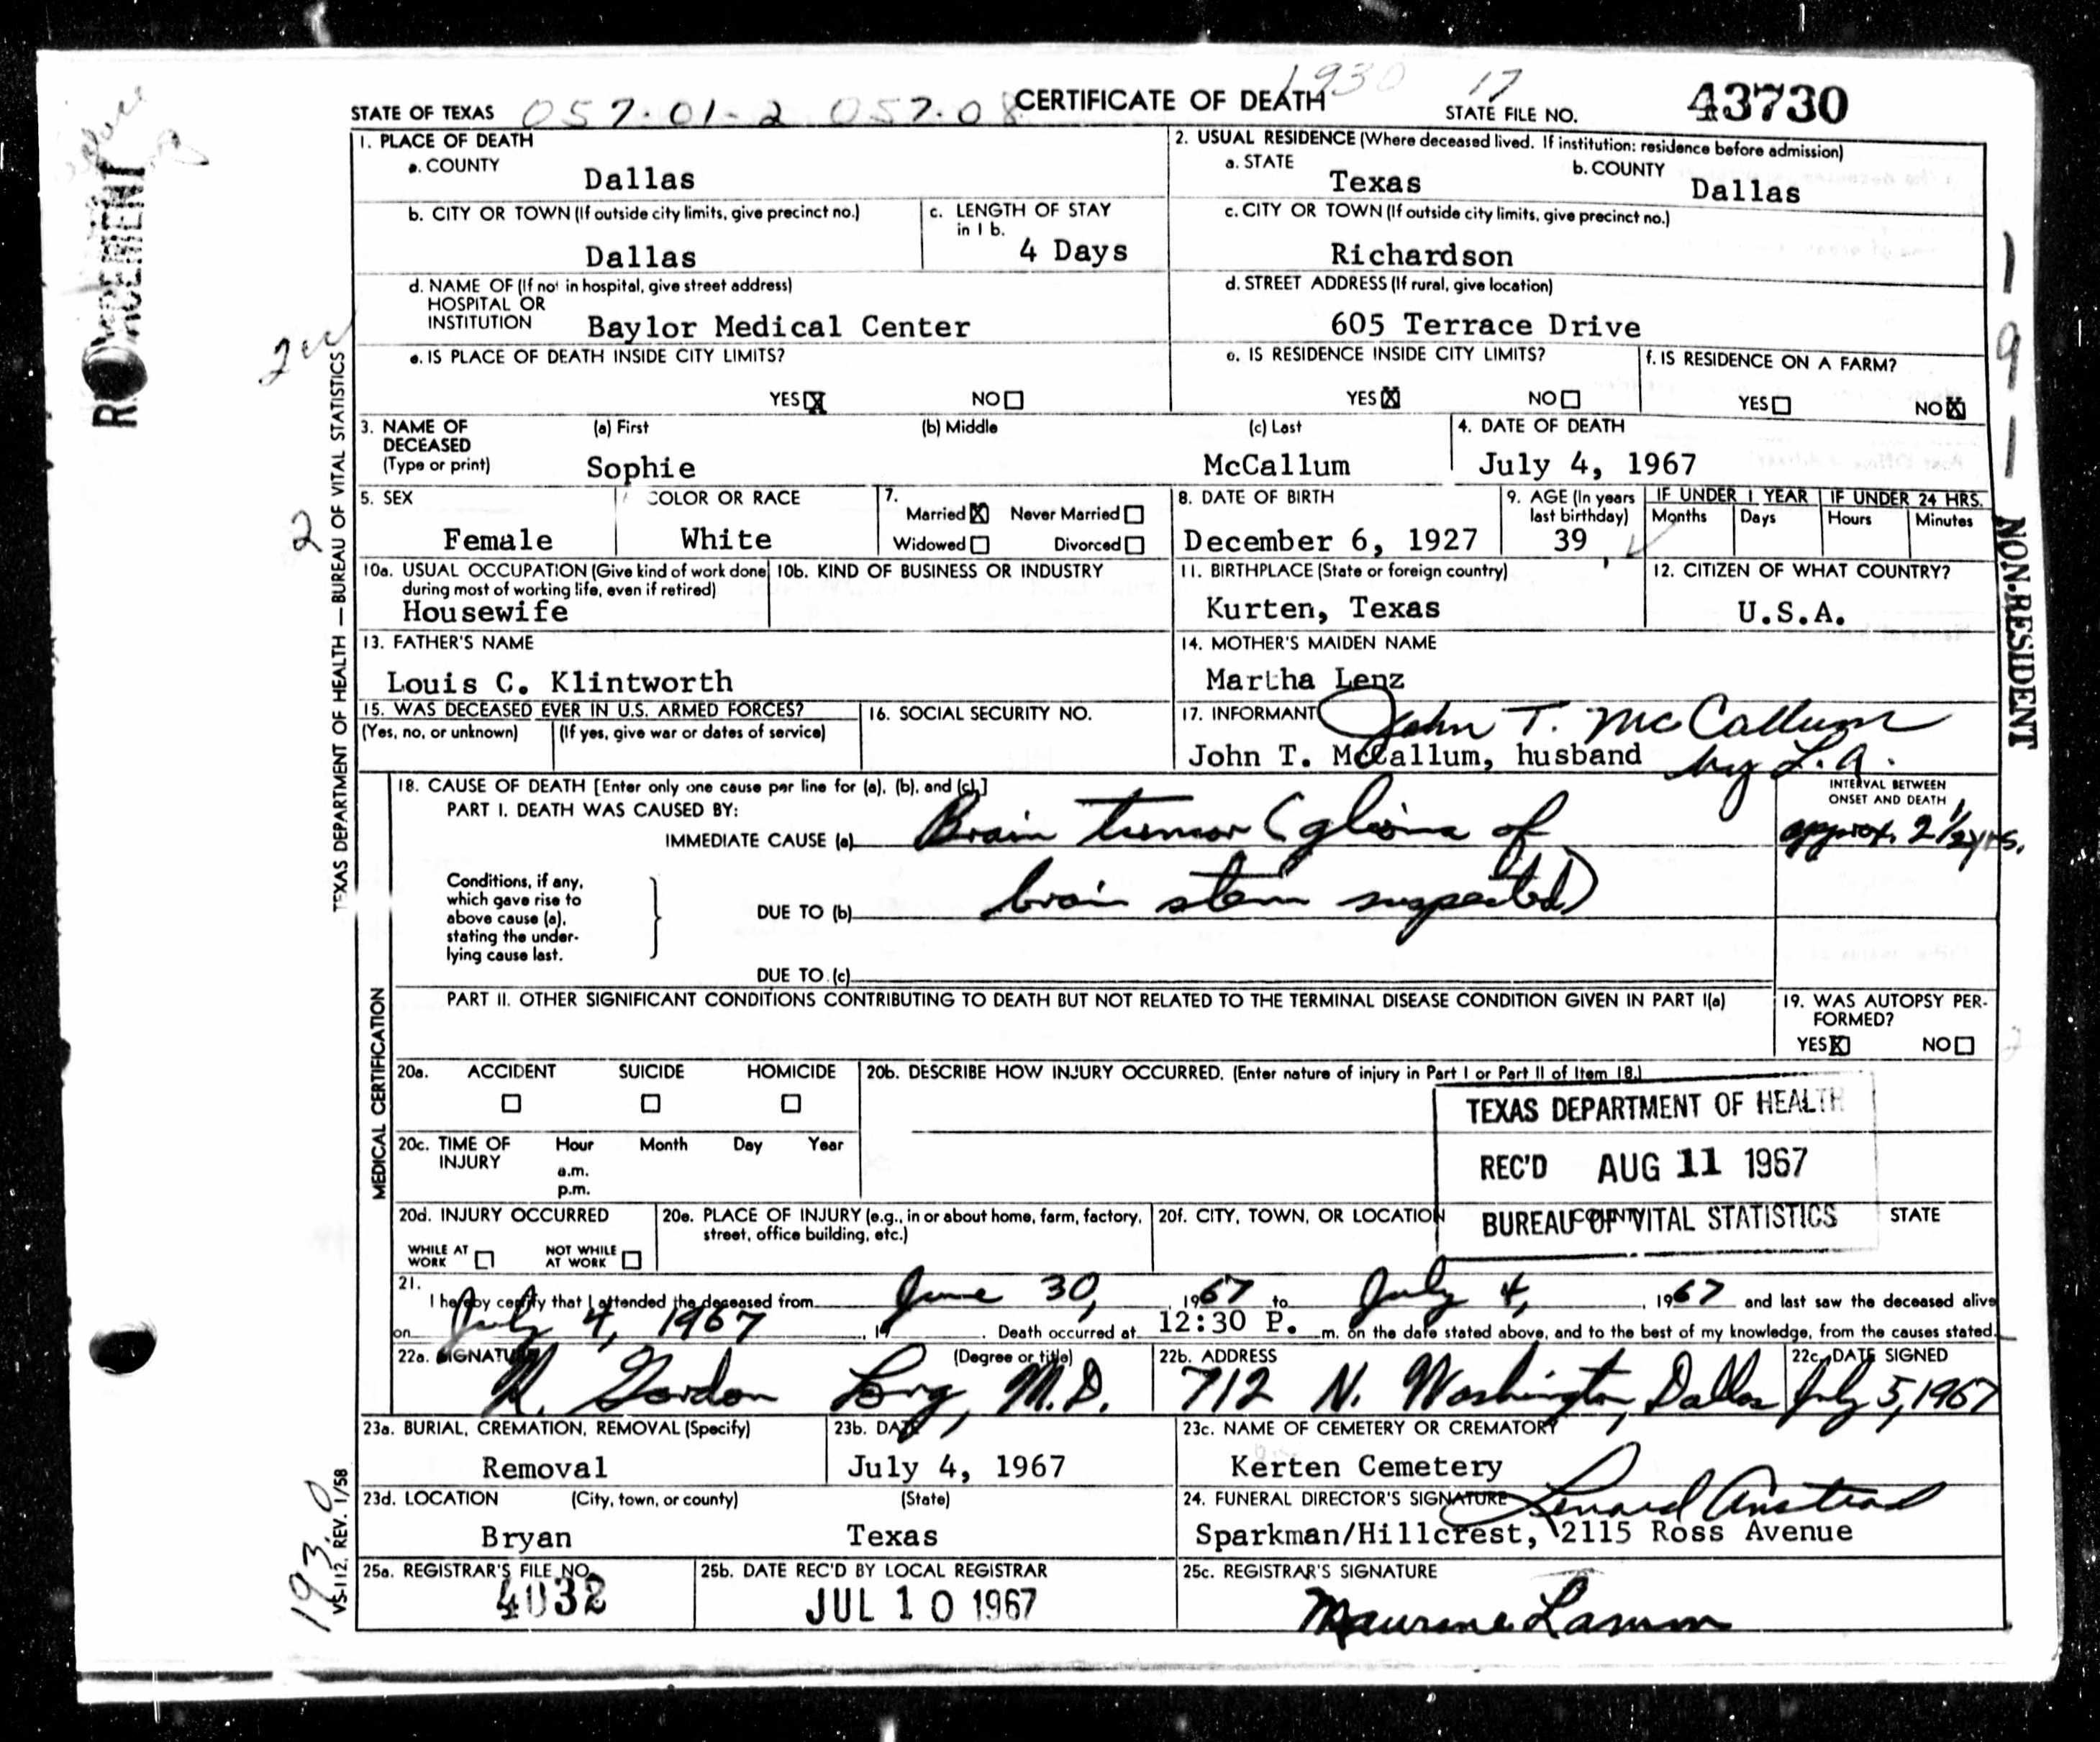 1930 17
STATE OF TEXAS 057-01-2 057-08 CERTIFICATE OF DEATH STATE FILE NO. 43730
1. PLACE OF DEATH
a. COUNTY
Dallas
2. USUAL RESIDENCE (Where deceased lived. If institution: residence before admission)
a. STATE b. COUNTY
Texas Dallas
b. CITY OR TOWN (If outside city limits, give precinct no.)
Dallas
c. LENGTH OF STAY
in 1 b.
4 Days
c. CITY OR TOWN (If outside city limits, give precinct no.)
Richardson
d. NAME OF (If not in hospital, give street address)
HOSPITAL OR
INSTITUTION Baylor Medical Center
d. STREET ADDRESS (If rural, give location)
605 Terrace Drive
e. IS PLACE OF DEATH INSIDE CITY LIMITS?
YES X NO
e. IS RESIDENCE INSIDE CITY LIMITS?
YES X NO
f. IS RESIDENCE ON A FARM?
YES NO X
3. NAME OF
DECEASED
(Type or print)
(a) First (b) Middle (c) Last
Sophie McCallum
4. DATE OF DEATH
July 4, 1967
5. SEX
Female
COLOR OR RACE
White
7.
Married X Never Married
Widowed Divorced
8. DATE OF BIRTH
December 6, 1927
9. AGE (In years
last birthday)
39
IF UNDER 1 YEAR IF UNDER 24 HRS.
Months Days Hours Minutes
10a. USUAL OCCUPATION (Give kind of work done
during most of working life, even if retired)
Housewife
10b. KIND OF BUSINESS OR INDUSTRY
11. BIRTHPLACE (State or foreign country)
Kurten, Texas
12. CITIZEN OF WHAT COUNTRY?
U.S.A.
13. FATHER'S NAME
Louis C. Klintworth
14. MOTHER'S MAIDEN NAME
Martha Lenz
15. WAS DECEASED EVER IN U.S. ARMED FORCES?
(Yes, no, or unknown) (If yes, give war or dates of service)
16. SOCIAL SECURITY NO.
17. INFORMANT John T. McCallum
John T. McCallum, husband by L.A.
18. CAUSE OF DEATH [Enter only one cause per line for (a), (b), and (c).]
PART I. DEATH WAS CAUSED BY:
INTERVAL BETWEEN
ONSET AND DEATH
IMMEDIATE CAUSE (a) Brain tumor (glioma of approx. 2 1/2 yrs.
Conditions, if any,
which gave rise to
above cause (a),
stating the under-
lying cause last.
DUE TO (b) brain stem suspected)
DUE TO (c)
PART II. OTHER SIGNIFICANT CONDITIONS CONTRIBUTING TO DEATH BUT NOT RELATED TO THE TERMINAL DISEASE CONDITION GIVEN IN PART I(a)
19. WAS AUTOPSY PER-
FORMED?
YES X NO
20a. ACCIDENT SUICIDE HOMICIDE
20b. DESCRIBE HOW INJURY OCCURRED. (Enter nature of injury in Part I or Part II of Item 18.)
20c. TIME OF
INJURY
Hour Month Day Year
a.m.
p.m.
TEXAS DEPARTMENT OF HEALTH
REC'D AUG 11 1967
BUREAU OF VITAL STATISTICS
20d. INJURY OCCURRED
WHILE AT
WORK
NOT WHILE
AT WORK
20e. PLACE OF INJURY (e.g., in or about home, farm, factory,
street, office building, etc.)
20f. CITY, TOWN, OR LOCATION COUNTY STATE
21.
I hereby certify that I attended the deceased from June 30, 1967 to July 4, 1967 and last saw the deceased alive
on July 4, 1967, 19 . Death occurred at 12:30 P. m. on the date stated above, and to the best of my knowledge, from the causes stated.
22a. SIGNATURE (Degree or title)
Gordon Long, M.D.
22b. ADDRESS
712 N. Washington, Dallas
22c. DATE SIGNED
July 5, 1967
23a. BURIAL, CREMATION, REMOVAL (Specify)
Removal
23b. DATE
July 4, 1967
23c. NAME OF CEMETERY OR CREMATORY
Kerten Cemetery
23d. LOCATION (City, town, or county) (State)
Bryan Texas
24. FUNERAL DIRECTOR'S SIGNATURE
Sparkman/Hillcrest, 2115 Ross Avenue
25a. REGISTRAR'S FILE NO.
4032
25b. DATE REC'D BY LOCAL REGISTRAR
JUL 10 1967
25c. REGISTRAR'S SIGNATURE
TEXAS DEPARTMENT OF HEALTH — BUREAU OF VITAL STATISTICS
MEDICAL CERTIFICATION
VS-112. REV. 1/58
193.0
2
1-9-1
NON-RESIDENT